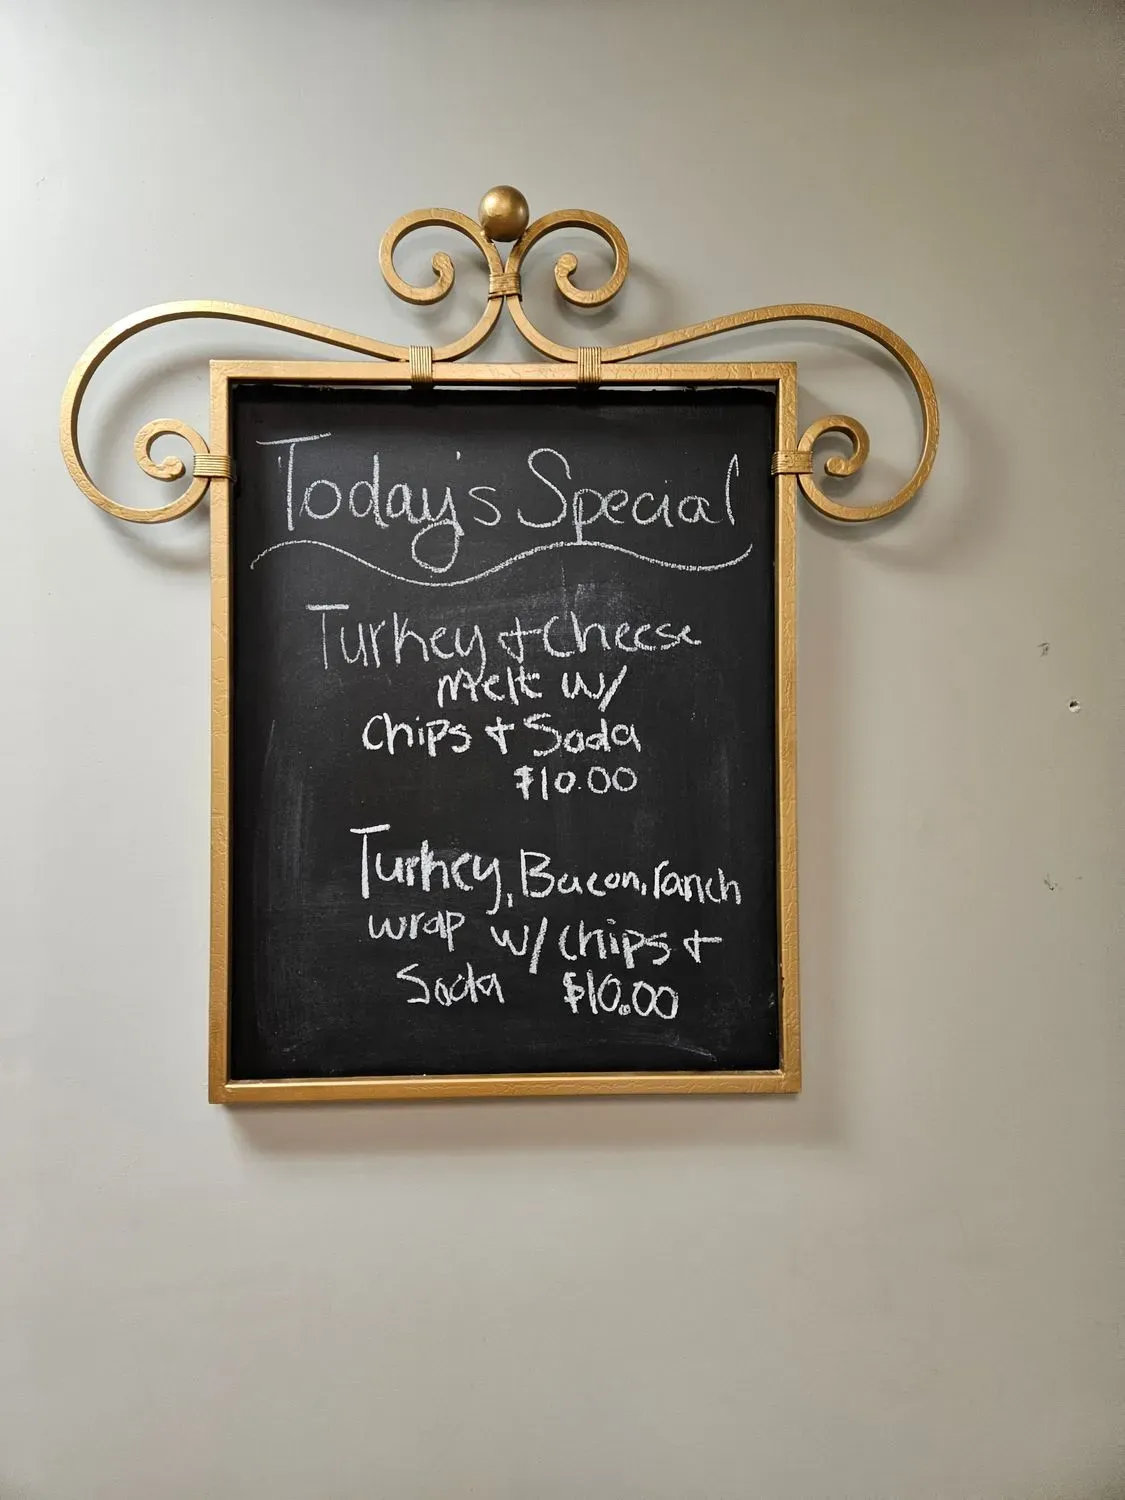 Today's Special
Turkey + Cheese
Melt w/
Chips + Soda
$10.00
Turkey, Bacon, ranch
wrap w/ chips +
Soda $10.00